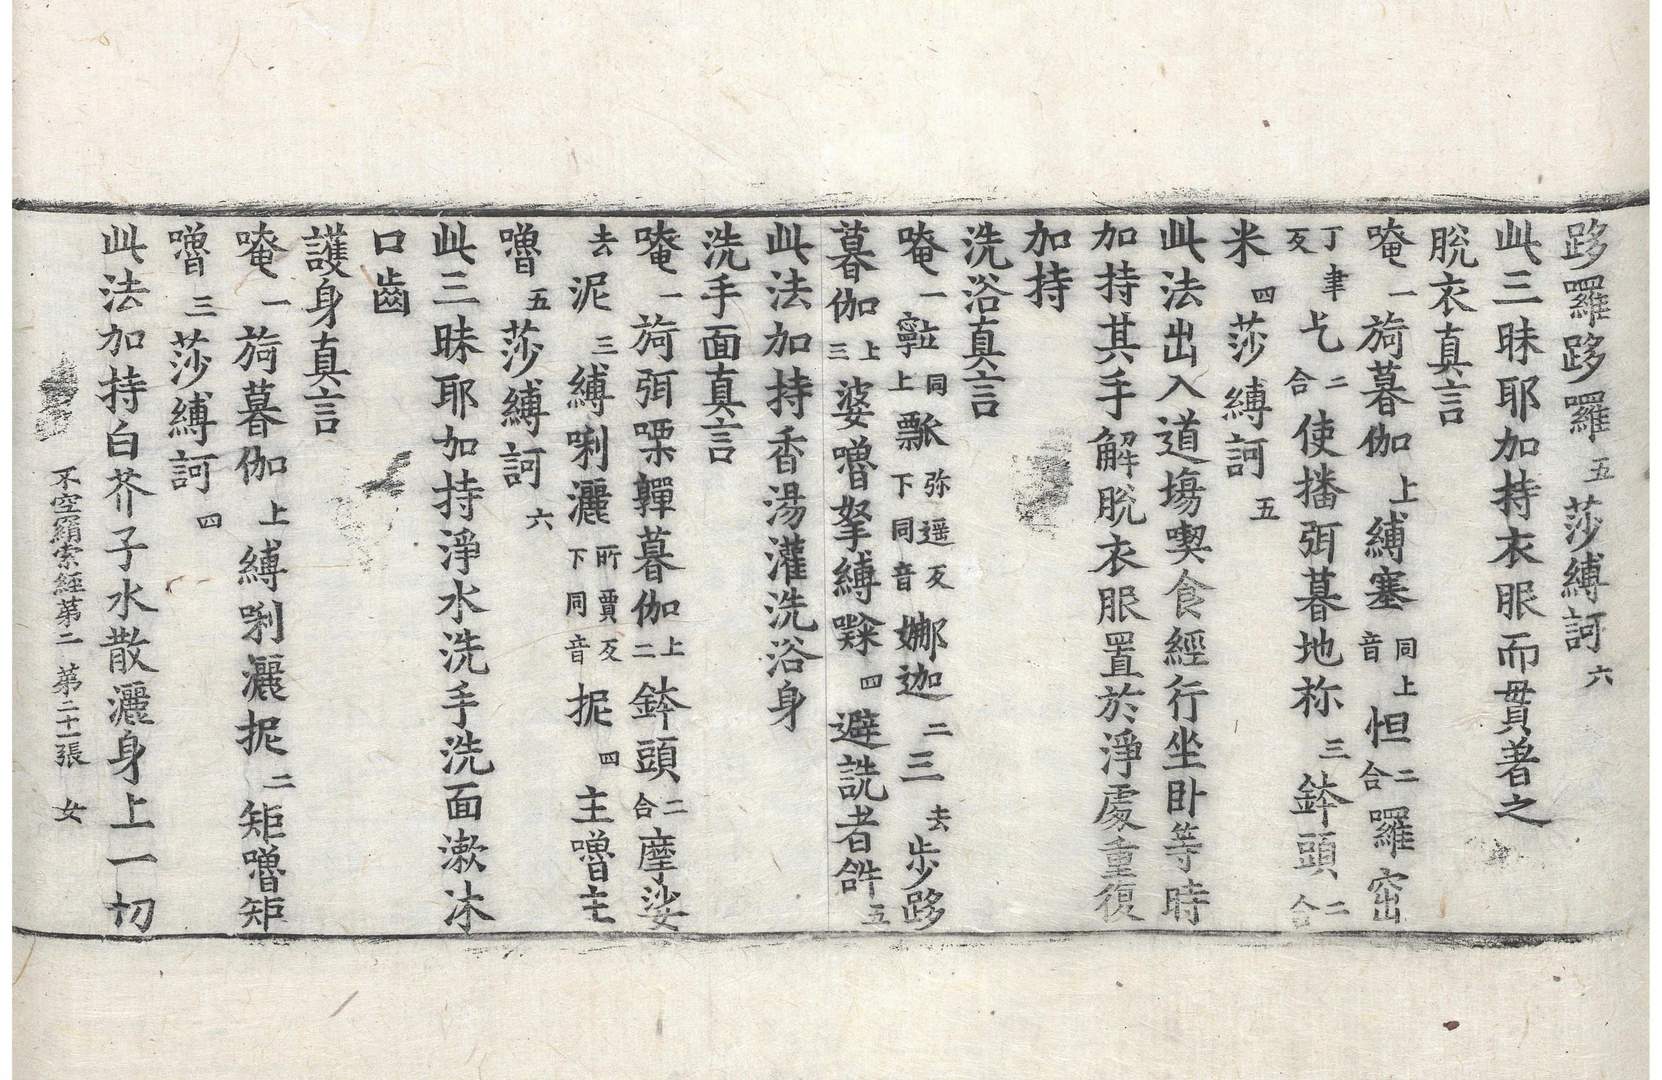 跢羅跢羅五莎縛訶六
此三昧耶加持衣服而貫著之
脫衣真言
唵一旖暮伽上縛塞同上音怛二合囉窋
丁聿反乞二合使播弭暮地袮三鉢頭二合
米四莎縛訶五
此法出入道場喫食經行坐臥等時
加持其手解脫衣服置於淨處重復
加持
洗浴真言
唵一同上瓢弥遥反下同音娜迦二三去步跢
暮伽上三婆嚕拏縛㘑四避詵者𤙖五
此法加持香湯灌洗浴身
洗手面真言
唵一旖弭㗚亸暮伽上二鉢頭二合摩娑
去泥三縛唎灑所賈反下同音抳四主嚕主
嚕五莎縛訶六
此三昧耶加持淨水洗手洗面漱沐
口齒
護身真言
唵一旖暮伽上縛唎灑抳二矩嚕矩
嚕三莎縛訶四
此法加持白芥子水散灑身上一切
不空羂索經第二　第二十一張　女